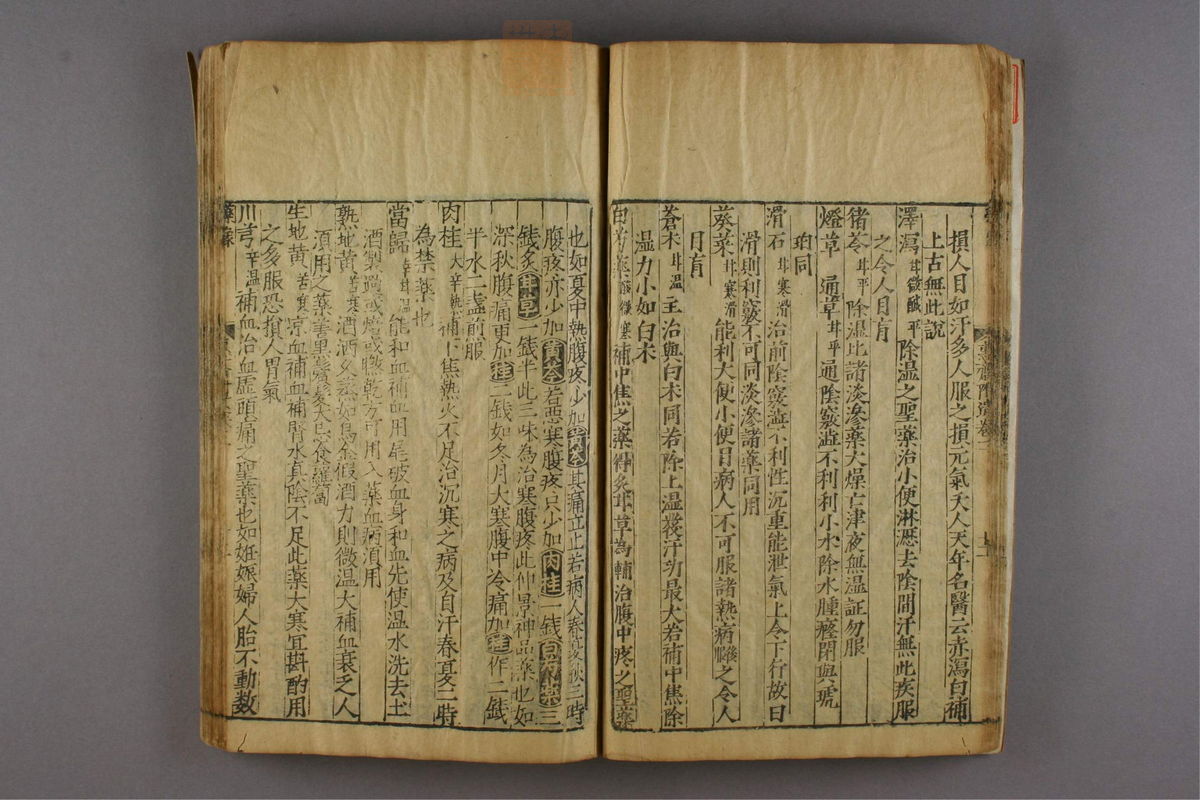 損人目如汗多人服之損元氣夭人天年名醫云赤瀉白補
上古無此說
澤瀉甘微鹹平除湿之聖藥治小便淋瀝去陰間汗無此疾服
之令人目盲
猪苓甘平除湿比諸淡滲藥大燥亡津夜無湿証勿服
燈草 通草甘平通陰竅澁不利利小水除水腫癃閉與琥
珀同
滑石甘寒滑治前陰竅澁不利性沉重能泄氣上令下行故曰
滑則利竅不可同淡滲諸藥同用
葵菜甘寒滑能利大便小便目病人不可服諸熱病後之令人
目盲
蒼朮甘温主治與白朮同若除上湿發汗功最大若補中焦除
湿力小如白朮
白芍藥酸微寒補中焦之藥得炙甘草為輔治腹中疼之聖藥
也如夏中熱腹疼少加黄芩其痛立止若病人春夏秋三時
腹疼亦少加黄芩若惡寒腹疼只少加肉桂一錢白芍藥三
錢炙甘草一錢半此三味為治寒腹疼此仲景神品藥也如
深秋腹痛更加桂二錢如冬月大寒腹中冷痛加桂作二錢
半水二盞煎服
肉桂大辛熱補下焦熱火不足治沉寒之病及自汗春夏二時
為禁藥也
當歸辛甘温能和血補血用尾破血身和血先使温水洗去土
酒製過或焙或晒乾方可用入藥血病須用
熟地黄苦寒酒洒九蒸如烏金假酒力則微温大補血衰乏人
須用之藥
生地黄苦寒凉血補血補腎水真陰不足此藥大寒宜斟酌用
之多服恐損人胃氣
川芎辛温補血治血虛頭痛之聖藥也如姙娠婦人胎不動数